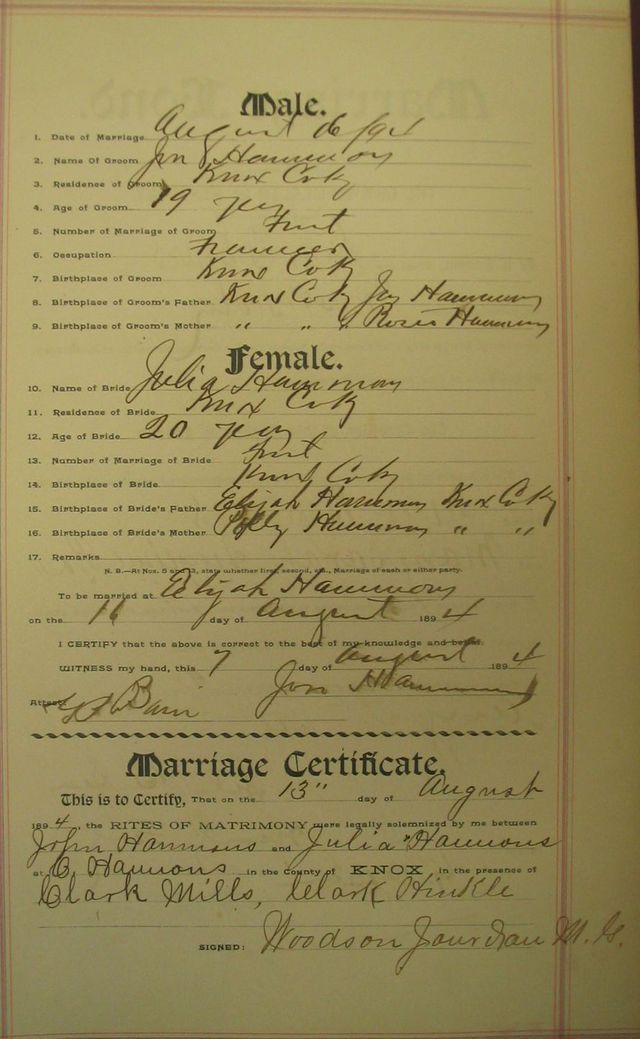 Male.
1. Date of Marriage August 16 1894
2. Name Of Groom Jon Hammons
3. Residence of Groom Knox Co Ky
4. Age of Groom 19 yrs
5. Number of Marriage of Groom First
6. Occupation Farmer
7. Birthplace of Groom Knox Co Ky
8. Birthplace of Groom's Father Knox Co Ky Hammons
9. Birthplace of Groom's Mother " " " Hammons
Female.
10. Name of Bride Julia Hammons
11. Residence of Bride Knox Co Ky
12. Age of Bride 20 yrs
13. Number of Marriage of Bride First
14. Birthplace of Bride Knox Co Ky
15. Birthplace of Bride's Father Elijah Hammons Knox Co Ky
16. Birthplace of Bride's Mother Polly Hammons " "
17. Remarks
N. B.—At Nos. 5 and 13, state whether first, second, etc., Marriage of each or either party.
To be married at Elijah Hammons
on the 16 day of August 1894
I CERTIFY that the above is correct to the best of my knowledge and belief.
WITNESS my hand, this 7 day of August 1894
Attest: Jon Hammons
Marriage Certificate.
This is to Certify, That on the 13" day of August
1894, the RITES OF MATRIMONY were legally solemnized by me between
John Hammons and Julia Hammons
at E. Hammons in the County of KNOX in the presence of
Clark Mills, Clark Hinkle
SIGNED: Woodson Jourdan M. G.